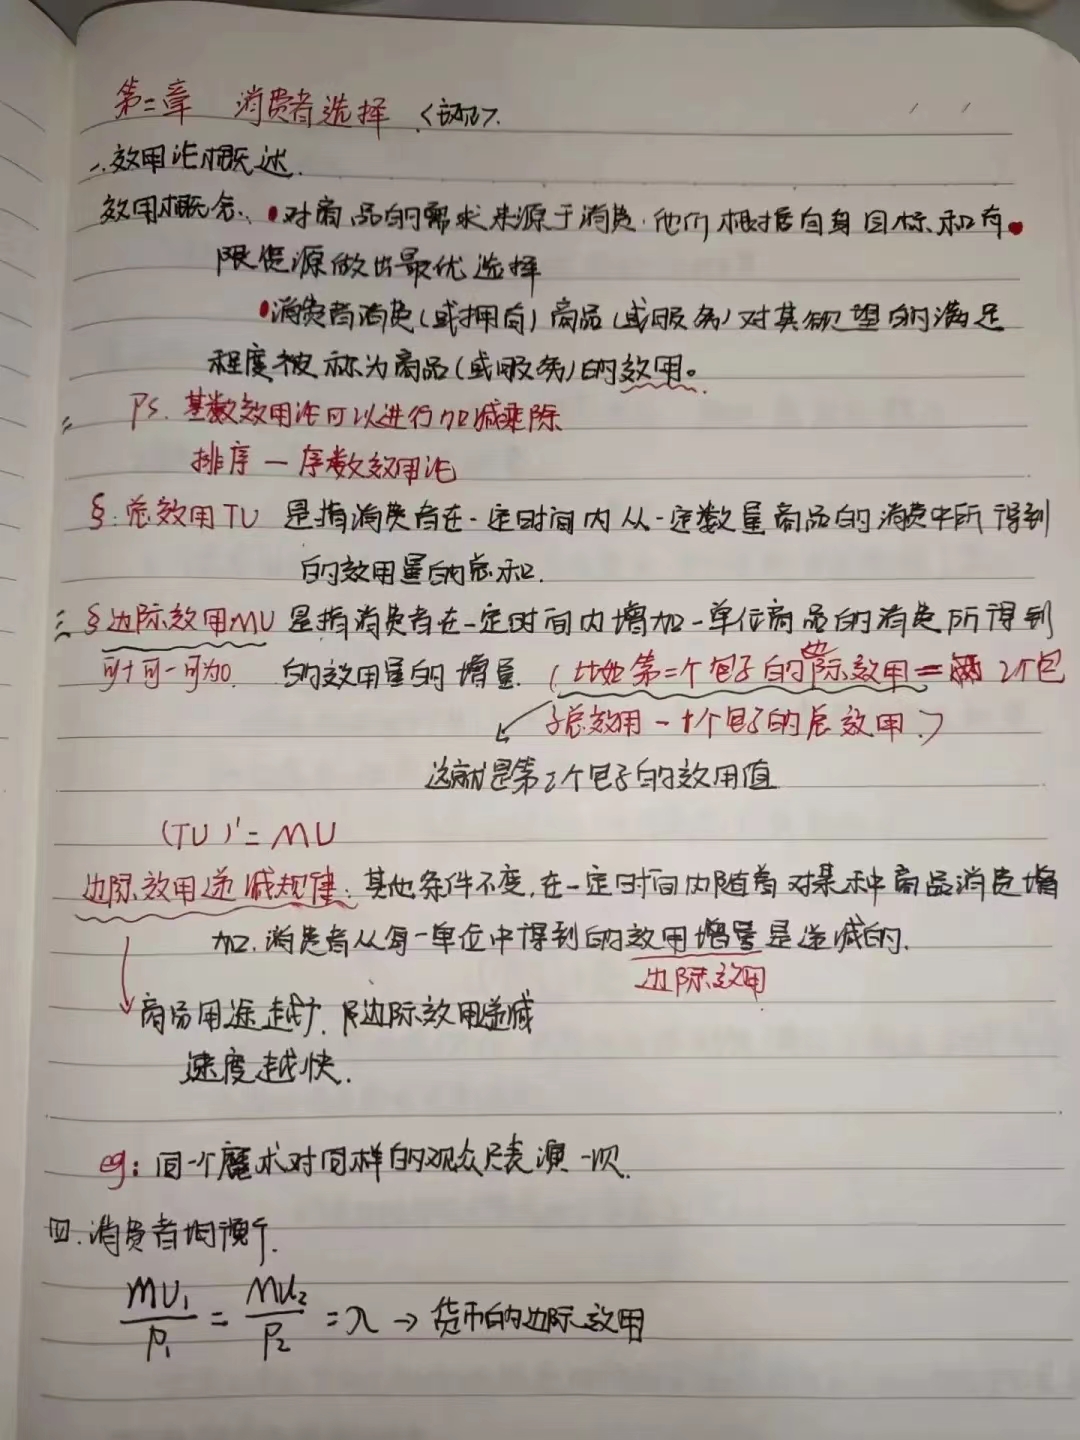 第二章 消费者选择
一.效用论概述.
效用概念.. 对商品的需求来源于消费.他们根据自身目标和有
限资源做出最优选择
消费者消费(或拥有)商品(或服务)对其欲望的满足
程度被称为商品(或服务)的效用。
二 PS. 基数效用论可以进行加减乘除
排序 — 序数效用论
§.总效用TU 是指消费者在一定时间内从一定数量商品的消费中所得到
的效用量的总和.
三 §边际效用MU 是指消费者在一定时间内增加一单位商品的消费所得到
可+可-可为0. 的效用量的增量. (比如第二个包子的边际效用=2个包
子总效用-1个包子的总效用.)
这就是第2个包子的效用值
(TU)'=MU
边际效用递减规律:其他条件不变,在一定时间内随着对某种商品消费增
加.消费者从每一单位中得到的效用增量是递减的.
边际效用
商品用途越少.其边际效用递减
速度越快.
eg:同一个魔术对同样的观众只表演一次.
四.消费者均衡.
MU₁/P₁ = MU₂/P₂ = λ → 货币的边际效用